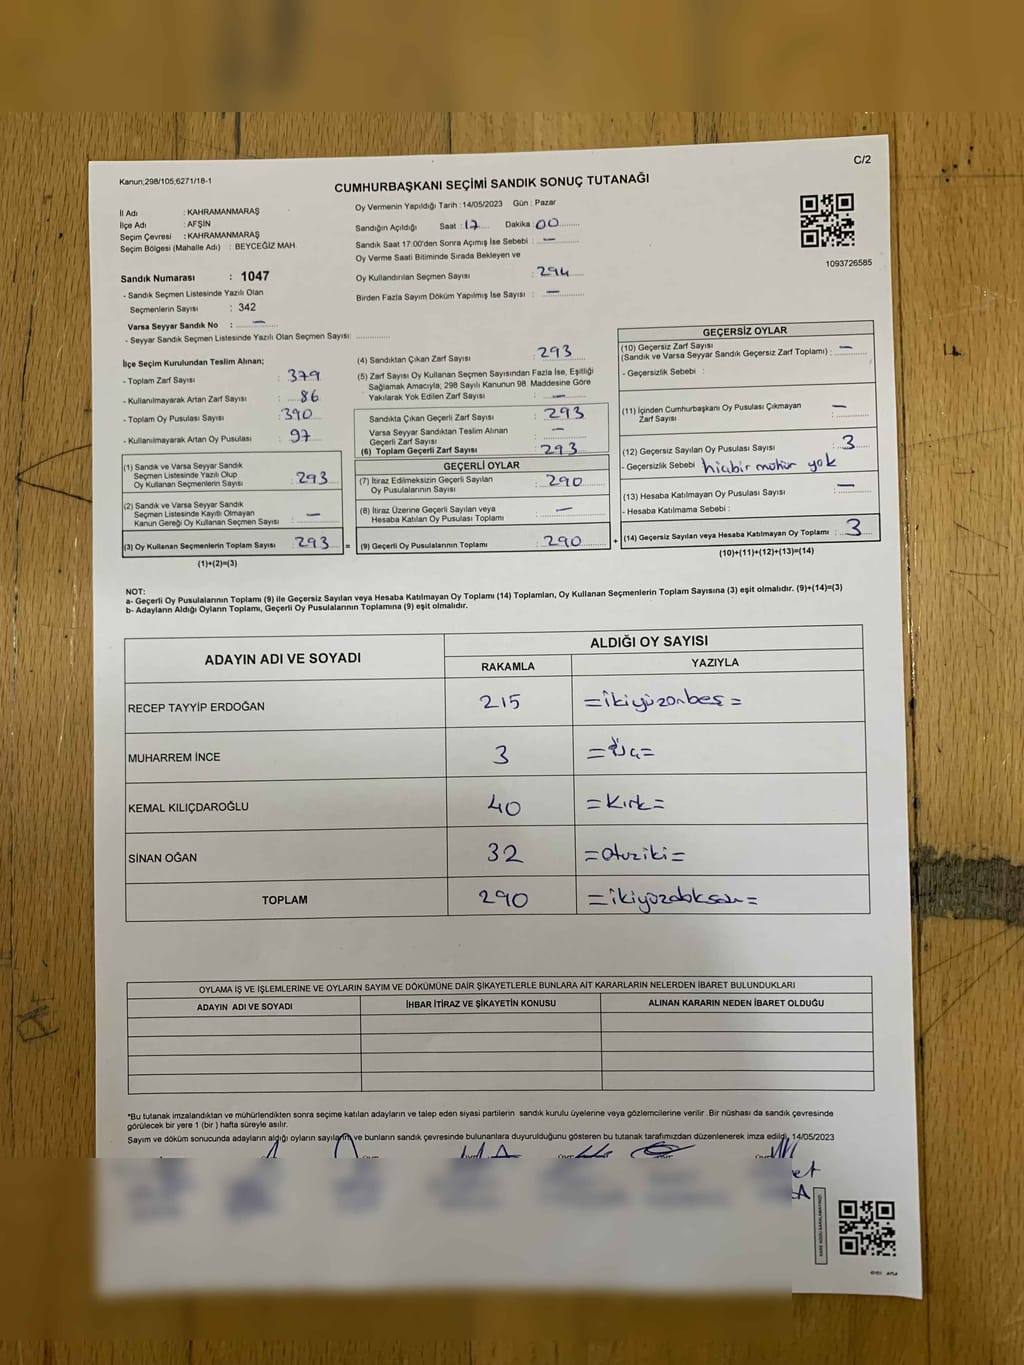 C/2
Kanun;298/105;6271/18-1
CUMHURBAŞKANI SEÇİMİ SANDIK SONUÇ TUTANAĞI
İl Adı : KAHRAMANMARAŞ
İlçe Adı : AFŞİN
Seçim Çevresi : KAHRAMANMARAŞ
Seçim Bölgesi (Mahalle Adı) : BEYCEĞİZ MAH.
Sandık Numarası : 1047
- Sandık Seçmen Listesinde Yazılı Olan
Seçmenlerin Sayısı : 342
Varsa Seyyar Sandık No : —
- Seyyar Sandık Seçmen Listesinde Yazılı Olan Seçmen Sayısı:
Oy Vermenin Yapıldığı Tarih : 14/05/2023 Gün : Pazar
Sandığın Açıldığı Saat : 17 Dakika : 00
Sandık Saat 17:00'den Sonra Açımış İse Sebebi : —
Oy Verme Saati Bitiminde Sırada Bekleyen ve
Oy Kullandırılan Seçmen Sayısı : 294
Birden Fazla Sayım Döküm Yapılmış İse Sayısı : —
1093726585
İlçe Seçim Kurulundan Teslim Alınan;
- Toplam Zarf Sayısı : 379
- Kullanılmayarak Artan Zarf Sayısı : 86
- Toplam Oy Pusulası Sayısı : 390
- Kullanılmayarak Artan Oy Pusulası : 97
(1) Sandık ve Varsa Seyyar Sandık
Seçmen Listesinde Yazılı Olup
Oy Kullanan Seçmenlerin Sayısı : 293
(2) Sandık ve Varsa Seyyar Sandık
Seçmen Listesinde Kayıtlı Olmayan
Kanun Gereği Oy Kullanan Seçmen Sayısı : —
(3) Oy Kullanan Seçmenlerin Toplam Sayısı : 293 =
(1)+(2)=(3)
(4) Sandıktan Çıkan Zarf Sayısı : 293
(5) Zarf Sayısı Oy Kullanan Seçmen Sayısından Fazla İse, Eşitliği
Sağlamak Amacıyla; 298 Sayılı Kanunun 98. Maddesine Göre
Yakılarak Yok Edilen Zarf Sayısı : —
Sandıkta Çıkan Geçerli Zarf Sayısı : 293
Varsa Seyyar Sandıktan Teslim Alınan
Geçerli Zarf Sayısı : —
(6) Toplam Geçerli Zarf Sayısı : 293
GEÇERLİ OYLAR
(7) İtiraz Edilmeksizin Geçerli Sayılan
Oy Pusulalarının Sayısı : 290
(8) İtiraz Üzerine Geçerli Sayılan veya
Hesaba Katılan Oy Pusulası Toplamı : —
(9) Geçerli Oy Pusulalarının Toplamı : 290 +
GEÇERSİZ OYLAR
(10) Geçersiz Zarf Sayısı
(Sandık ve Varsa Seyyar Sandık Geçersiz Zarf Toplamı) : —
- Geçersizlik Sebebi :
(11) İçinden Cumhurbaşkanı Oy Pusulası Çıkmayan
Zarf Sayısı : —
(12) Geçersiz Sayılan Oy Pusulası Sayısı : 3
- Geçersizlik Sebebi hiçbir mühür yok
(13) Hesaba Katılmayan Oy Pusulası Sayısı : —
- Hesaba Katılmama Sebebi :
(14) Geçersiz Sayılan veya Hesaba Katılmayan Oy Toplamı : 3
(10)+(11)+(12)+(13)=(14)
NOT:
a- Geçerli Oy Pusulalarının Toplamı (9) ile Geçersiz Sayılan veya Hesaba Katılmayan Oy Toplamı (14) Toplamları, Oy Kullanan Seçmenlerin Toplam Sayısına (3) eşit olmalıdır. (9)+(14)=(3)
b- Adayların Aldığı Oyların Toplamı, Geçerli Oy Pusulalarının Toplamına (9) eşit olmalıdır.
ADAYIN ADI VE SOYADI
ALDIĞI OY SAYISI
RAKAMLA YAZIYLA
RECEP TAYYİP ERDOĞAN 215 =ikiyüzonbeş=
MUHARREM İNCE 3 =üç=
KEMAL KILIÇDAROĞLU 40 =Kırk=
SİNAN OĞAN 32 =Otuziki=
TOPLAM 290 =ikiyüzdoksan=
OYLAMA İŞ VE İŞLEMLERİNE VE OYLARIN SAYIM VE DÖKÜMÜNE DAİR ŞİKAYETLERLE BUNLARA AİT KARARLARIN NELERDEN İBARET BULUNDUKLARI
ADAYIN ADI VE SOYADI İHBAR İTİRAZ VE ŞİKAYETİN KONUSU ALINAN KARARIN NEDEN İBARET OLDUĞU
*Bu tutanak imzalandıktan ve mühürlendikten sonra seçime katılan adayların ve talep eden siyasi partilerin sandık kurulu üyelerine veya gözlemcilerine verilir. Bir nüshası da sandık çevresinde
görülecek bir yere 1 (bir) hafta süreyle asılır.
Sayım ve döküm sonucunda adayların aldığı oyların sayıların ve bunların sandık çevresinde bulunanlara duyurulduğunu gösteren bu tutanak tarafımızdan düzenlenerek imza edildi. 14/05/2023